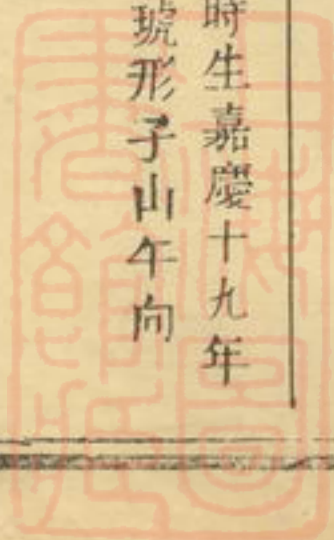 時生嘉慶十九年
琥形子山午向